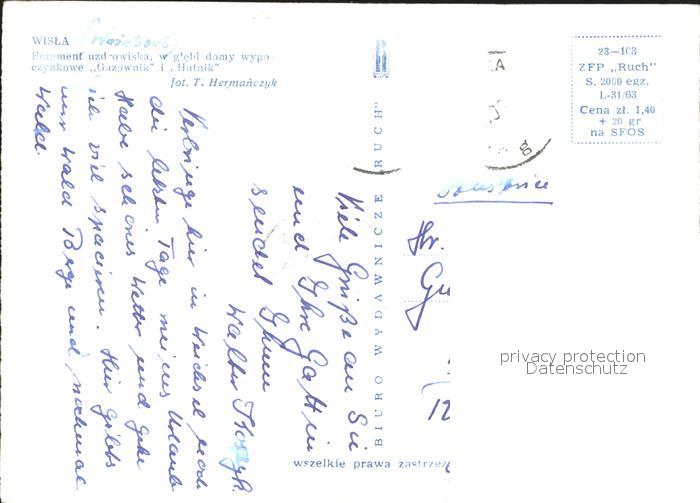 WISŁA (Weichsel)
Fragment uzdrowiska, w głębi domy wypo-
czynkowe „Gazownik" i „Hutnik"
fot. T. Hermańczyk
Verbringe hier in Weichsel noch
die letzten Tage meines Urlaub
Habe schönes Wetter und gehe
ich viel spazieren. Hier gibts
nur Wald Berge und nochmal
Wald.
Viele Grüße an Sie
und Ihre Gattin
sendet Ihnen
Walter
BIURO WYDAWNICZE „RUCH"
wszelkie prawa zastrze
23—103
ZFP „Ruch"
S. 2000 egz.
L-31/63
Cena zł. 1,40
+ 20 gr
na SFOS
Hr.
12
privacy protection
Datenschutz